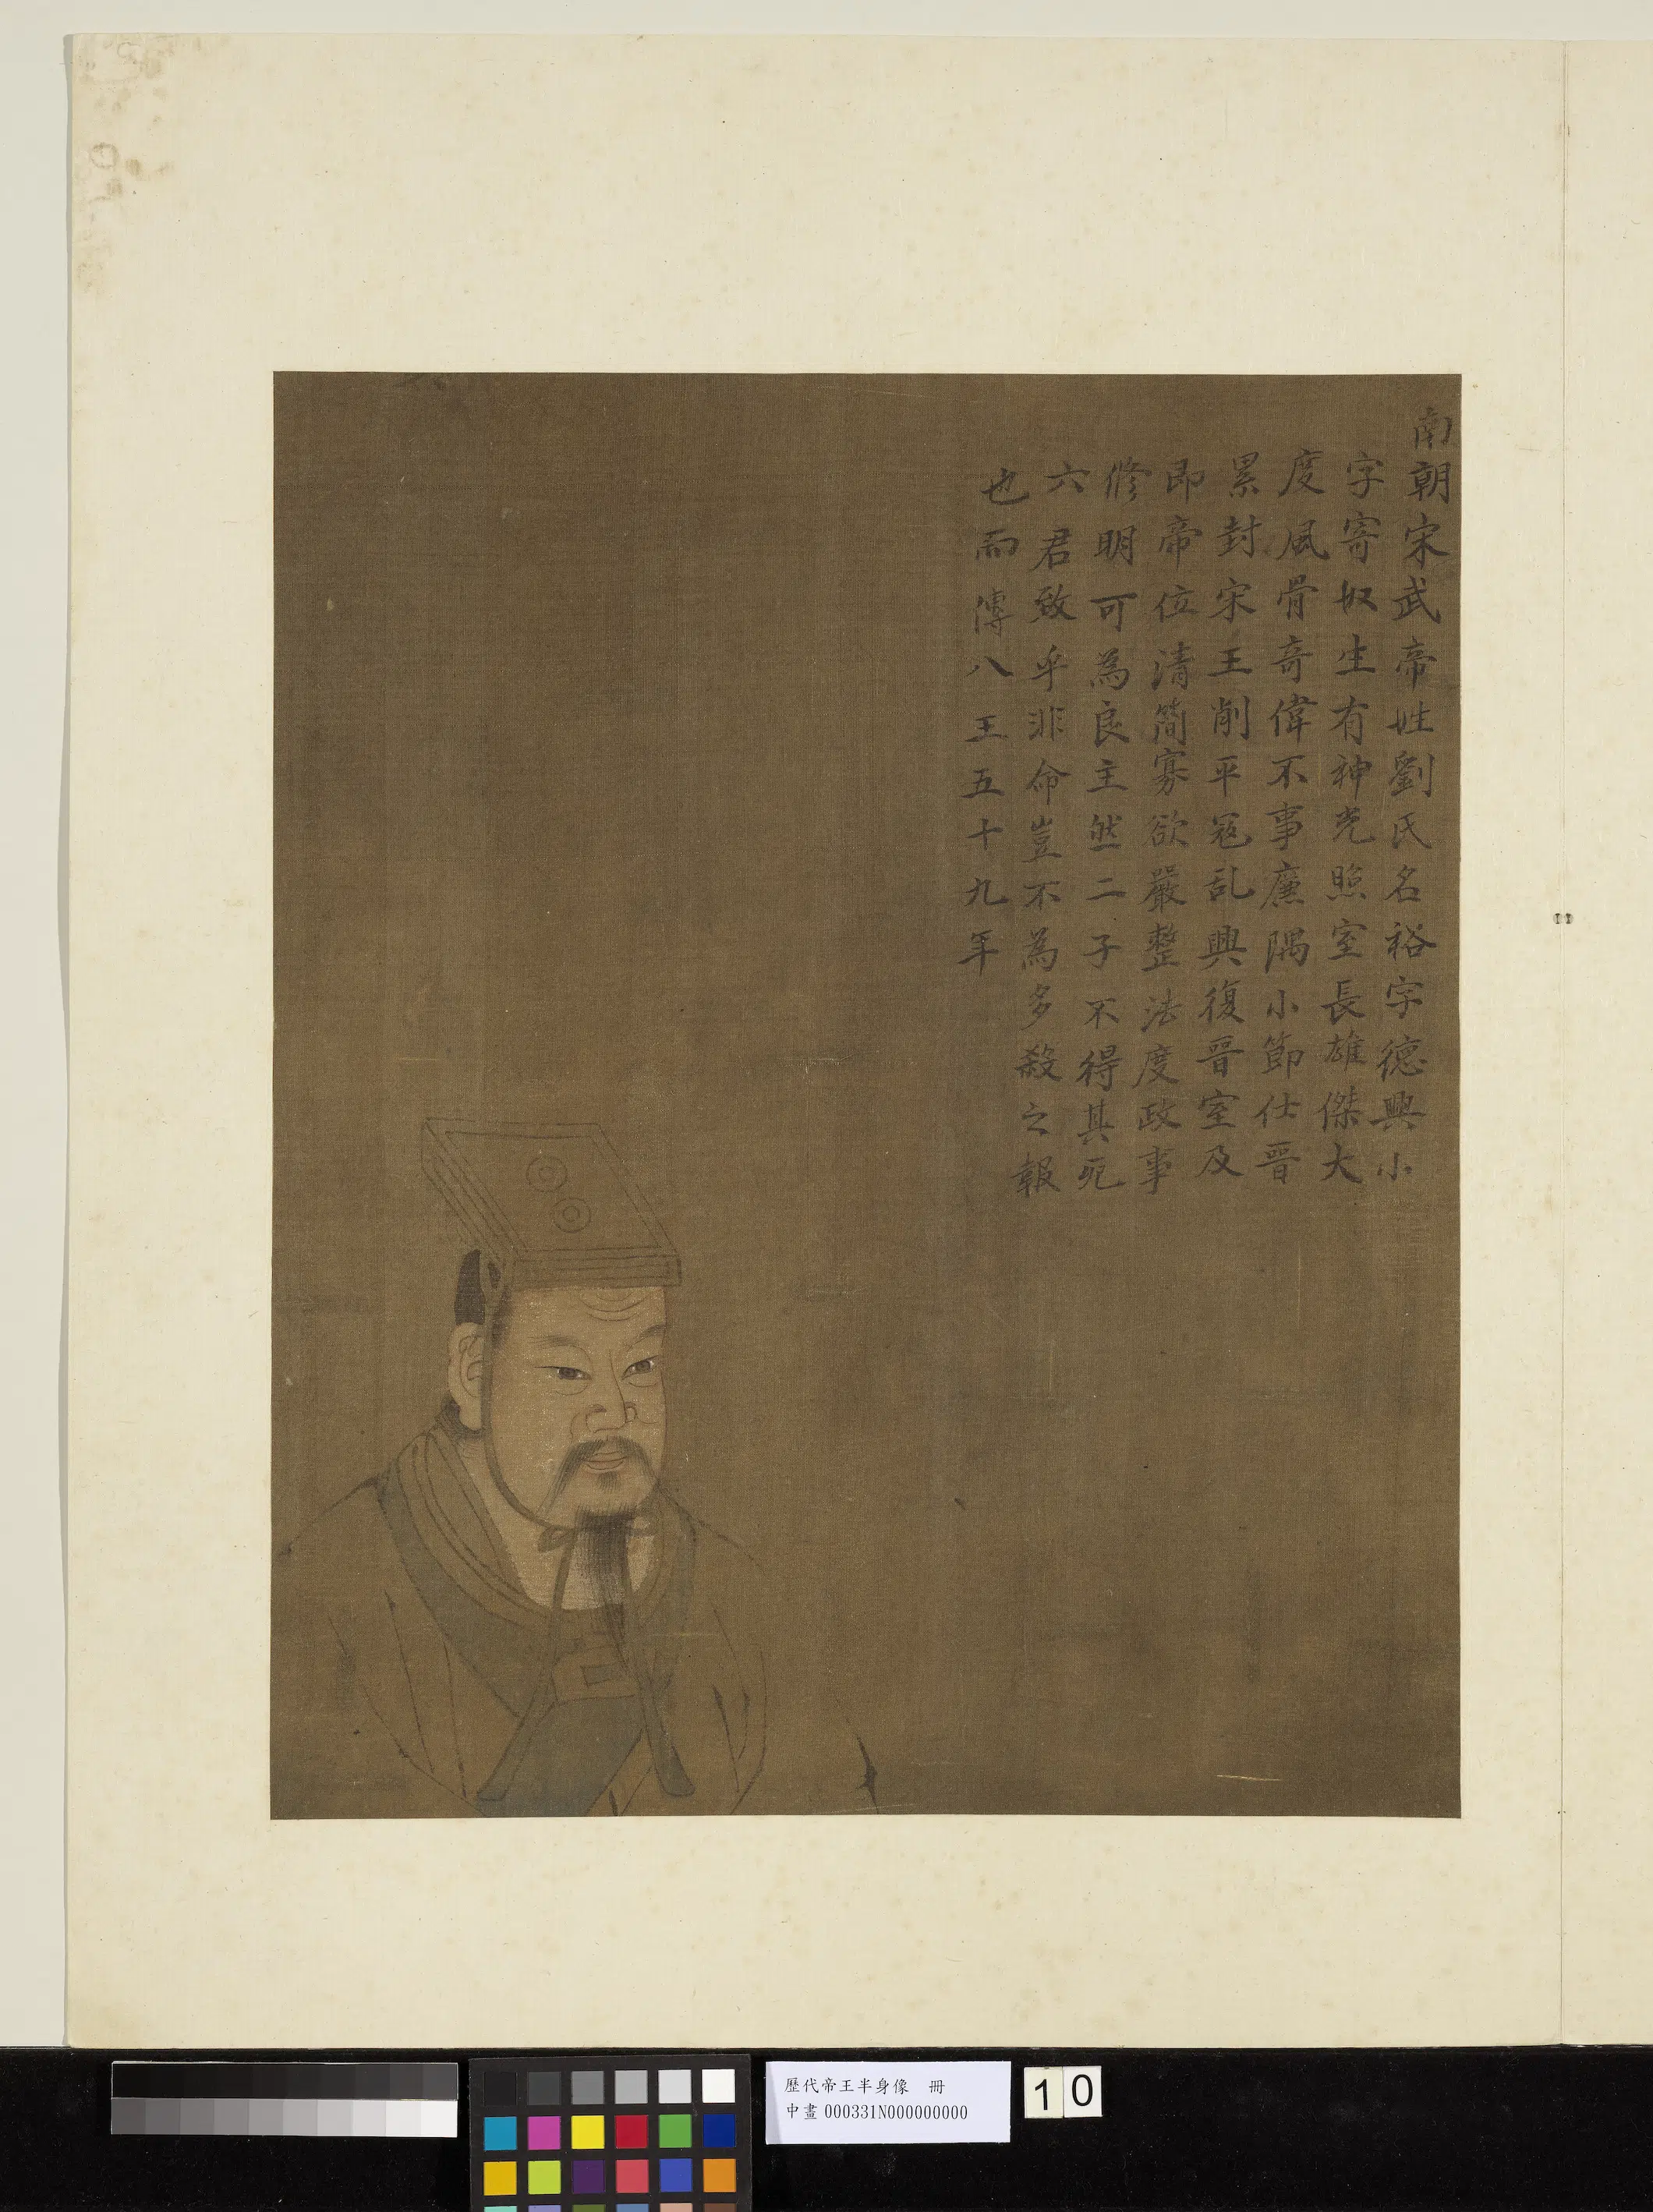 南朝宋武帝姓劉氏名裕字德興小
字寄奴生有神光照室長雄傑大
度風骨奇偉不事廉隅小節仕晉
累封宋王削平寇乱興復晉室及
即帝位清簡寡欲嚴整法度政事
修明可為良主然二子不得其死
六君致乎非命豈不為多殺之報
也而傳八王五十九年
歷代帝王半身像 冊
中畫000331N000000000
10